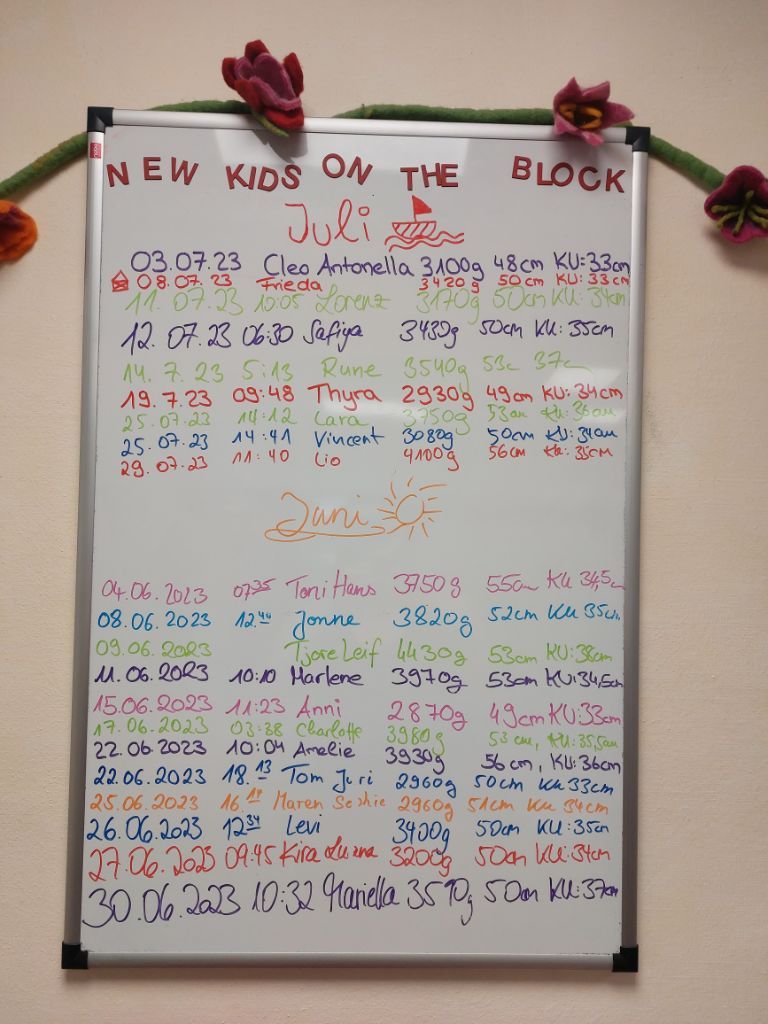 NEW KIDS ON THE BLOCK
Juli
03.07.23 Cleo Antonella 3100g 48cm KU:33cm
08.07.23 Frieda 3420g 50cm KU:33cm
11.07.23 10:05 Lorenz 3170g 50cm KU:34cm
12.07.23 06:30 Safiya 3430g 50cm KU:35cm
14.7.23 5:13 Rune 3540g 53c 37c
19.7.23 09:48 Thyra 2930g 49cm KU:34cm
25.07.23 14:12 Lara 3750g 53cm KU:36cm
25.07.23 14:41 Vincent 3080g 50cm KU:34cm
29.07.23 11:40 Lio 4100g 56cm KU:35cm
Juni
04.06.2023 07:35 Toni Hans 3750g 55cm KU 34,5cm
08.06.2023 12.40 Jonne 3820g 52cm KU 35cm
09.06.2023 Tjore Leif 4430g 53cm KU:38cm
11.06.2023 10:10 Marlene 3970g 53cm KU:34,5cm
15.06.2023 11:23 Anni 2870g 49cm KU:33cm
17.06.2023 03:38 Charlotte 3980g 53cm, KU:35,5cm
22.06.2023 10:04 Amelie 3930g 56cm, KU:36cm
22.06.2023 18.13 Tom Juri 2960g 50cm KU 33cm
25.06.2023 16 Maren 2960g 51cm KU 34cm
26.06.2023 12 34 Levi 3400g 50cm KU:35cm
27.06.2023 09:45 Kira 3200g 50cm KU:34cm
30.06.2023 10:32 Mariella 3510g 50cm KU:37cm